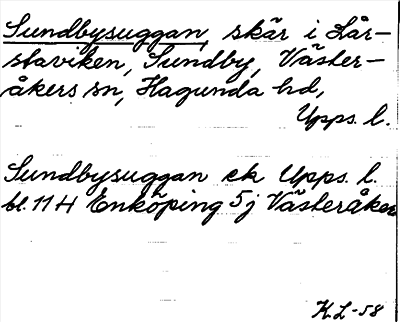 Sundbysuggan, skär i Lår-
staviken, Sundby, Väster-
åkers sn, Hagunda hd,
Upps. l.
Sundbysuggan ek Upps. l.
bl. 11 H Enköping 5j Västeråker
K L -58